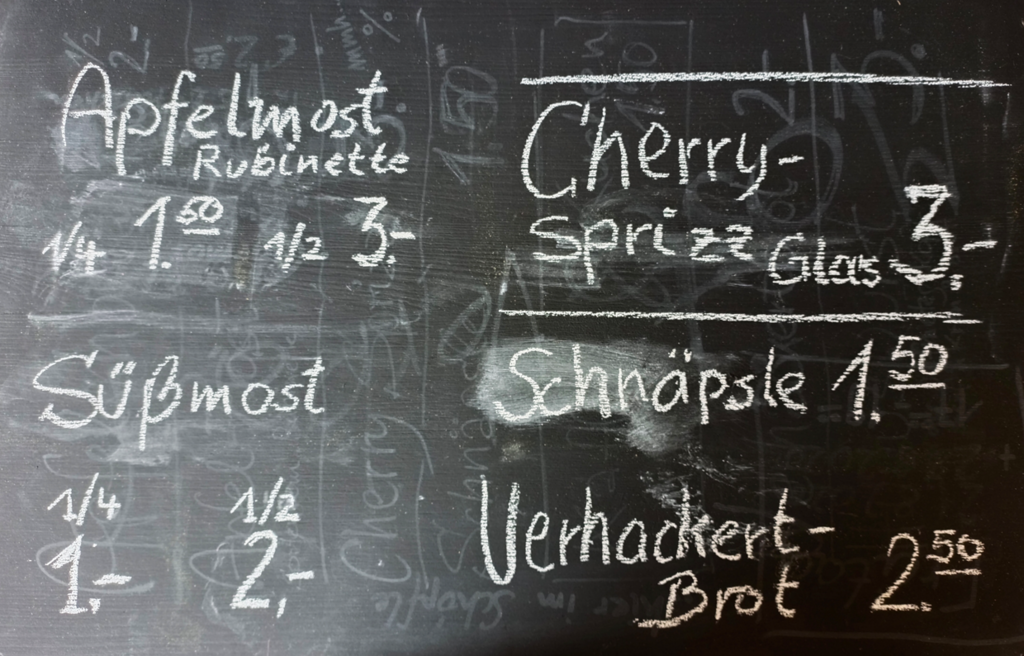 Apfelmost
Rubinette
1/4 1.50 1/2 3.-
Süßmost
1/4 1/2
1.- 2.-
Cherry-
sprizz Glas 3.-
Schnäpsle 1.50
Verhackert-
Brot 2.50